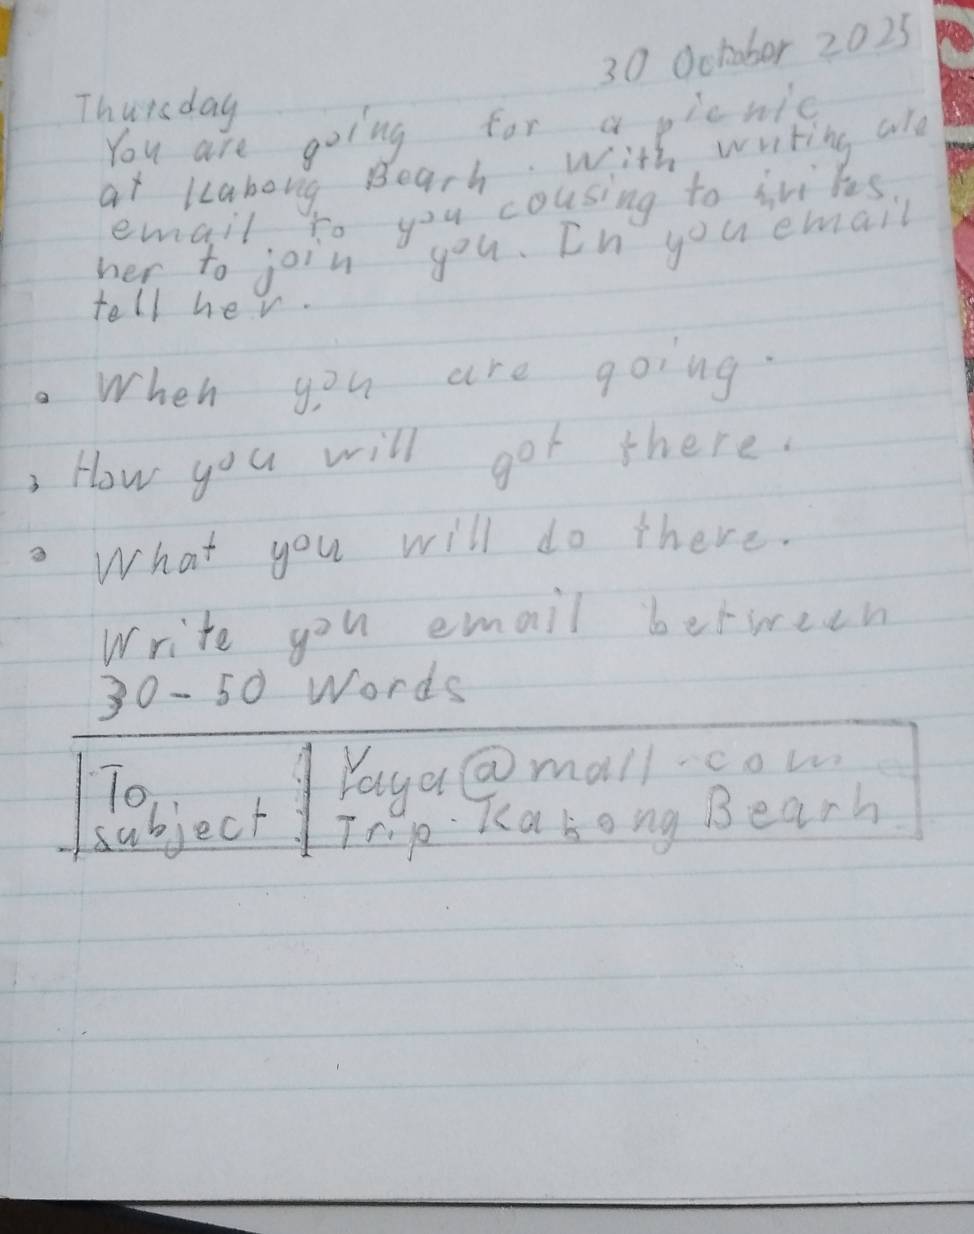 30 October 2025
Thursday
You are going for a picnic
at Kabong Bearh. With writing are
email to you cousing to invites
her to join you. In you email
tell her.
• When you are going.
• How you will got there.
• What you will do there.
Write you email between
30-50 Words
To Yaya@mall.com
subject Trip. Kabong Bearh